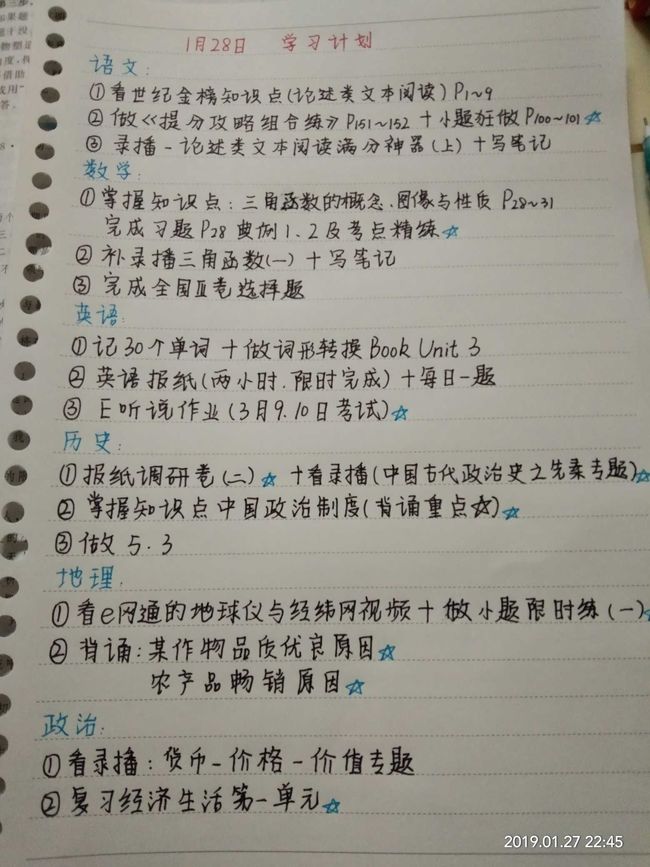 1月28日 学习计划
语文:
①看世纪金榜知识点(论述类文本阅读)P1~9
②做《提分攻略组合练》P151~152 + 小题狂做P100~101☆
③录播-论述类文本阅读满分神器(上)+写笔记
数学:
①掌握知识点:三角函数的概念.图像与性质 P28~31
完成习题P28典例1、2及考点精练☆
②补录播三角函数(一)+写笔记
③完成全国Ⅱ卷选择题
英语:
①记30个单词+做词形转换Book Unit 3
②英语报纸(两小时.限时完成)+每日一题
③E听说作业(3月9.10日考试)☆
历史:
①报纸调研卷(二)☆ +看录播(中国古代政治史之先秦专题)☆
②掌握知识点中国政治制度(背诵重点☆)☆
③做5.3
地理.
①看e网通的地球仪与经纬网视频+做小题限时练(一)☆
②背诵:某作物品质优良原因☆
农产品畅销原因☆
政治:
①看录播:货币-价格-价值专题
②复习经济生活第一单元☆
2019.01.27 22:45